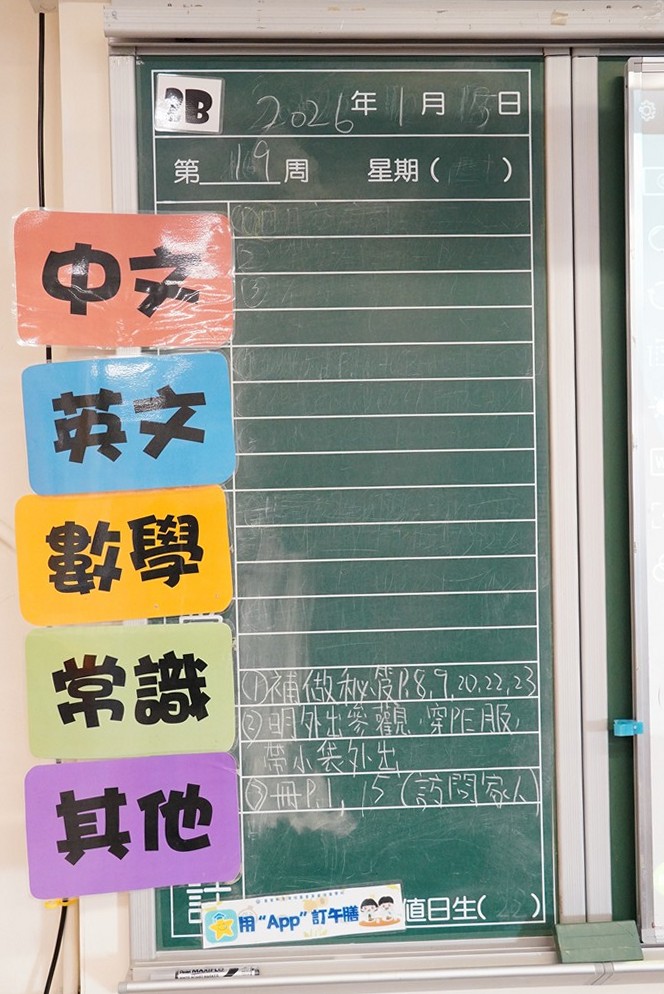 2026年1月15日
第19周 星期( )
中文
英文
數學
常識
①補做秘笈P.8,9,20,22,23
②明外出參觀,穿PE服,
帶小袋外出
③冊P.1, 15 (訪問家人)
其他
用“App”訂午膳
值日生(22)